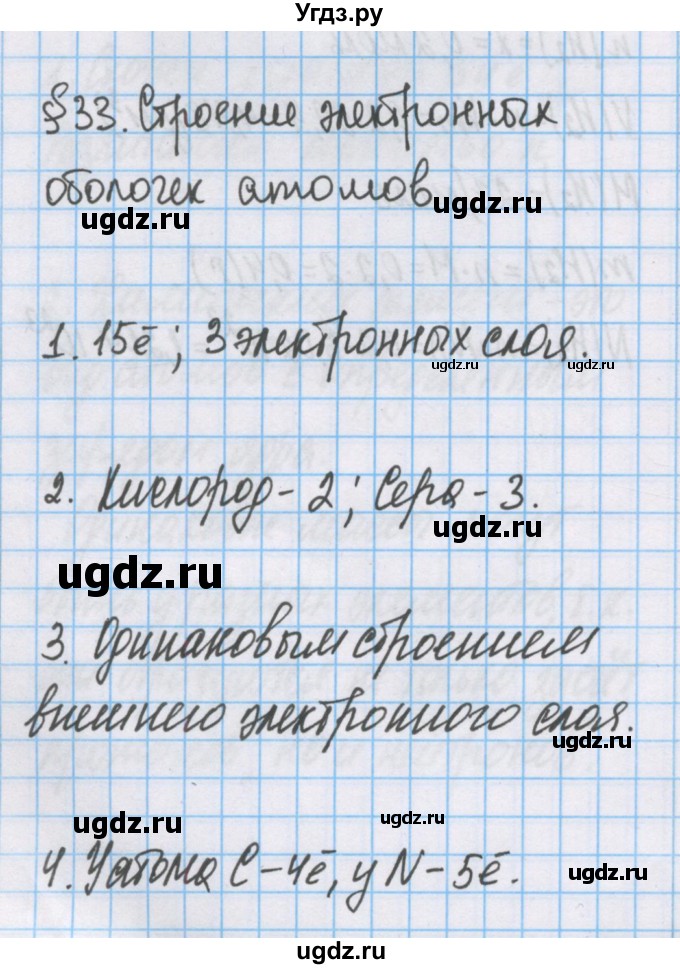 Угдз.ру
§33. Строение электронных
оболочек атомов
ugdz.ru
ugdz.ru
1. 15ē; 3 электронных слоя.
ugdz.ru
ugdz.ru
2. Кислород - 2; Сера - 3.
ugdz.ru
ugdz.ru
3. Одинаковым строением
внешнего электронного слоя.
ugdz.ru
ugdz.ru
ugdz.ru
4. У атома C - 4ē, у N - 5ē.
ugdz.ru
ugdz.ru